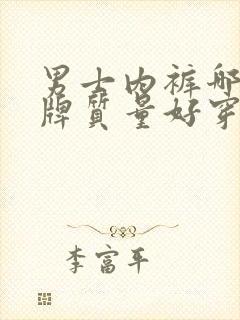 男士内裤哪
牌质量好穿
李富平